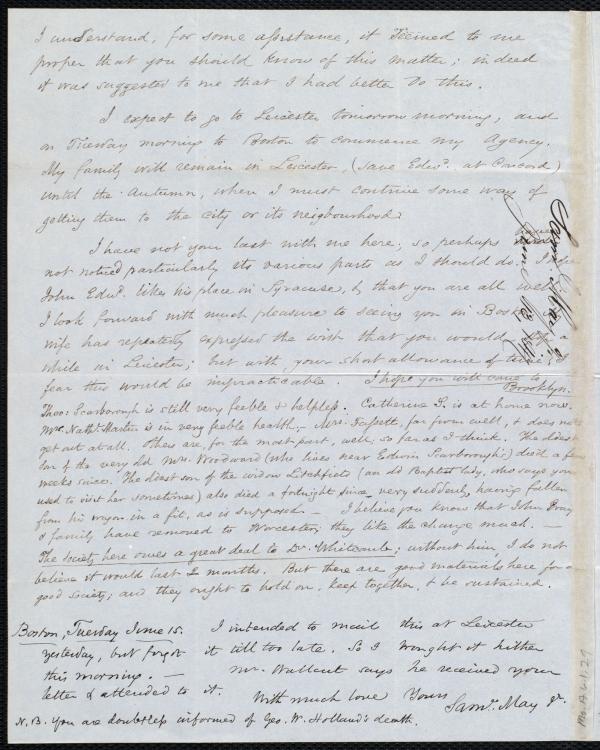 I understand, for some assistance, it seemed to me
proper that you should know of this matter; indeed
it was suggested to me that I had better do this.
I expect to go to Leicester tomorrow morning, and
on Tuesday morning to Boston to commence my Agency.
My family will remain in Leicester, (save Edwd. at Concord)
until the Autumn, when I must contrive some way of
getting them to the city or its neighbourhood.
I have not your last with me here; so perhaps have
not noticed particularly its various parts as I should do. I hope
John Edwd. likes his place in Syracuse, & that you are all well.
I look forward with much pleasure to seeing you in Boston. My
wife has repeatedly expressed the wish that you would stop a
while in Leicester; but with your short allowance of time I
fear this would be impracticable. I hope you will come to
Brooklyn.
Theo: Scarborough is still very feeble & helpless. Catherine S. is at home now.
Mrs. Nathl. Martin is in very feeble health; Mrs. Fassett, far from well, & does not
get out at all. Others are, for the most part, well, so far as I think. The oldest
son of the very old Mrs. Woodward (who lives near Edwin Scarborough's) died a few
weeks since. The oldest son of the widow Litchfield (an old Baptist lady, who says you
used to visit her sometimes) also died a fortnight since very suddenly, having fallen
from his wagon in a fit, as is supposed. — I believe you know that John Gray
& family have removed to Worcester; they like the change much. —
The Society here owes a great deal to Dr. Whitcomb; without him, I do not
believe it would last 2 months. But there are good materials here for a
good society; and they ought to hold on, keep together, & be sustained.
Boston, Tuesday June 15. I intended to mail this at Leicester
yesterday, but forgot it till too late. So I brought it hither
this morning. — Mr. Wallcut says he received your
letter & attended to it. With much love Yours
Saml. May Jr.
N.B. You are doubtless informed of Geo. W. Holland's death.
Saml. May Jr.
June